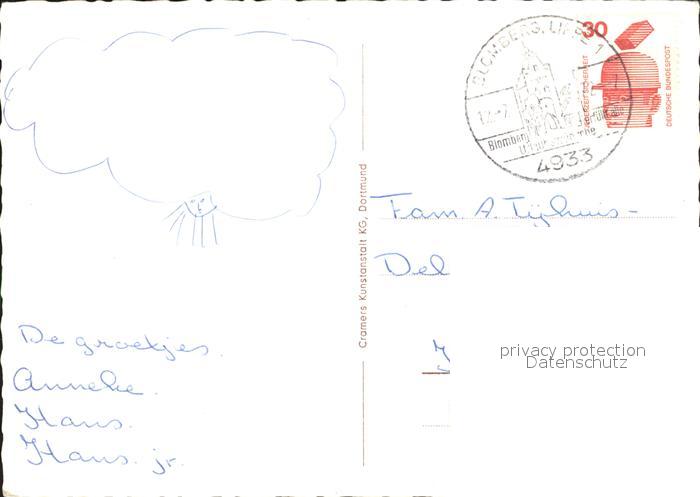 De groetjes.
Anneke.
Hans.
Hans. jr.
Cramers Kunstanstalt KG, Dortmund
BLOMBERG, LIPPE 1
Blomberg
4933
30
JEDERZEIT SICHERHEIT
DEUTSCHE BUNDESPOST
Fam. A. Tijhuis-
Del
privacy protection
Datenschutz